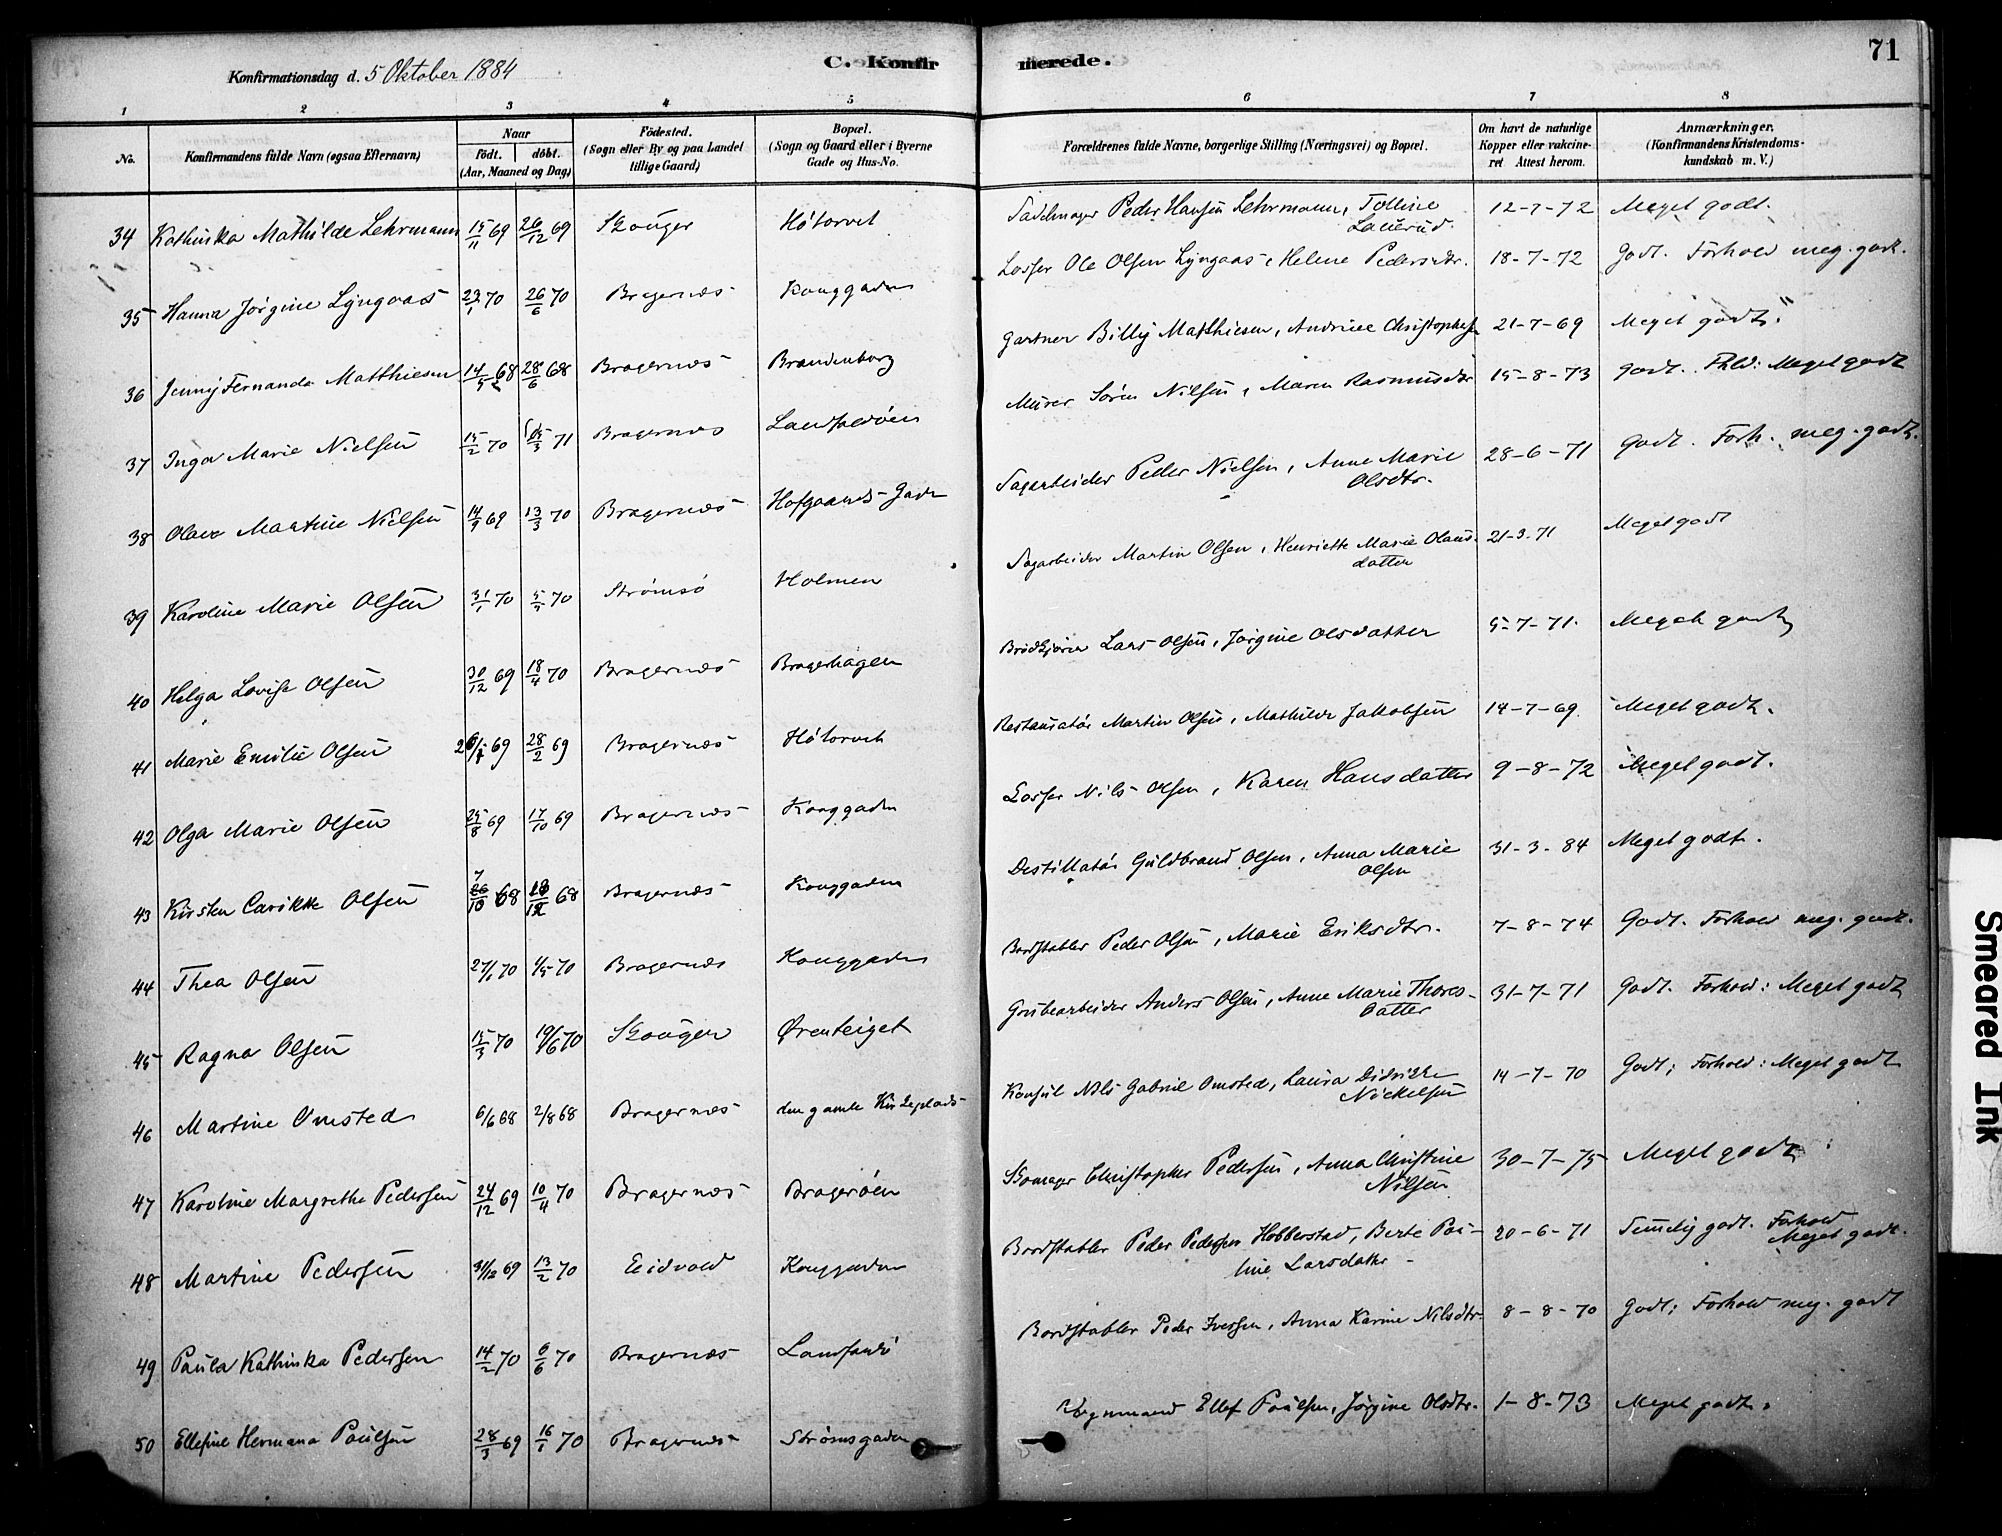 71
Konfirmationsdag d. 5 Oktober 1884
C. Konfirmerede.
1 2 3 4 5 6 7 8
No.
Konfirmandens fulde Navn (ogsaa Efternavn)
Naar
födt. döbt.
(Aar, Maaned og Dag)
Födested.
(Sogn eller By og paa Landet
tillige Gaard)
Bopæl.
(Sogn og Gaard eller i Byerne
Gade og Hus-No.
Forældrenes fulde Navne, borgerlige Stilling (Næringsvei) og Bopæl.
Om havt de naturlige
Kopper eller vakcine-
ret. Attest herom.
Anmærkninger.
(Konfirmandens Kristendoms-
kundskab m. V.)
34 Kathinka Mathilde Lehrmann 15/11 69 26/12 69 Skouger Hötorvet Sadelmager Peder Hansen Lehrmann, Talline 12-7-72 Meget godt.
Lauerud.
35 Hanna Jörgine Lyngaas 23/1 70 26/6 70 Bragernæs Konggaden Losser Ole Olsen Lyngaas, Helene Pedersdtr. 18-7-72 Godt. Forhold meg. godt.
36 Jenny Fernanda Matthiesen 14/5 68 28/6 68 Bragernæs Brandenborg Gartner Billy Matthiesen, Andrine Christophersen 21-7-69 Meget godt.
37 Inga Marie Nielsen 15/2 70 15/3 71 Bragernæs Landfaldöen Murer Sören Nilsen, Maren Rasmusdtr 15-8-73 Godt. Fhld: Meget godt
38 Olava Martine Nielsen 14/9 69 13/3 70 Bragernæs Hofgaards-Gade Sagarbeider Peder Nielsen, Anne Marie 28-6-71 Godt. Forh. meg. godt.
Olsdtr.
39 Karoline Marie Olsen 31/1 70 5/3 70 Strömsö Holmen Sagarbeider Martin Olsen, Henriette Marie Olaus- 21-3-71 Meget godt
datter
40 Helga Lovise Olsen 30/12 69 18/4 70 Bragernæs Bragerhagen Brödkjörer Lars Olsen, Jörgine Olsdatter 5-7-71. Meget godt
41 Marie Emilie Olsen 26/1 69 28/2 69 Bragernæs Hötorvet Restauratör Martin Olsen, Mathilde Jakobsen 14-7-69. Meget godt.
42 Olga Marie Olsen 25/8 69 17/10 69 Bragernæs Konggaden Losser Nils Olsen, Karen Hansdatter 9-8-72 Meget godt.
43 Kirsten Olsen 10 68 12 68 Bragernæs Konggaden Destillatör Guldbrand Olsen, Anna Marie 31-3-84 Meget godt.
Olsen
44 Thea Olsen 27/1 70 1/5 70 Bragernæs Konggaden Bordstabler Peder Olsen, Marie Eriksdtr. 7-8-74 Godt. Forhold meg. godt.
45 Ragna Olsen 15/3 70 19/6 70 Skouger Örenteiget Grubearbeider Anders Olsen, Anne Marie Thores- 31-7-71 Godt. Forhold: Meget godt
datter
46 Martine Omsted 6/6 68 2/8 68 Bragernæs den gamle Kirkeplads Konsul Nils Gabriel Omsted, Laura Didrikke 14-7-70 Godt; Forhold: Meget godt
Nickelsen
47 Karoline Margrethe Pedersen 24/12 69 10/4 70 Bragernæs Bragerøen Skomager Christopher Pedersen, Anna Christine 30-7-75 Meget godt
Nilsen
48 Martine Pedersen 31/12 69 13/2 70 Eidvold Konggaden Bordstabler Peder Pedersen Hobberstad, Berte Pau- 20-6-71 Temelig godt. Forhold
line Larsdatter Meget godt.
49 Paula Kathinka Pedersen 14/2 70 6/6 70 Bragernæs Bordstabler Peder Iversen, Anna Karine Nilsdtr 8-8-70 Godt; Forhold meg. godt
50 Ellefine Hermana Paulsen 28/3 69 16/1 70 Bragernæs Strömsgaden Vognmand Ellef Paulsen, Jörgine Olsdtr. 1-8-73 Meget godt.
Smeared Ink